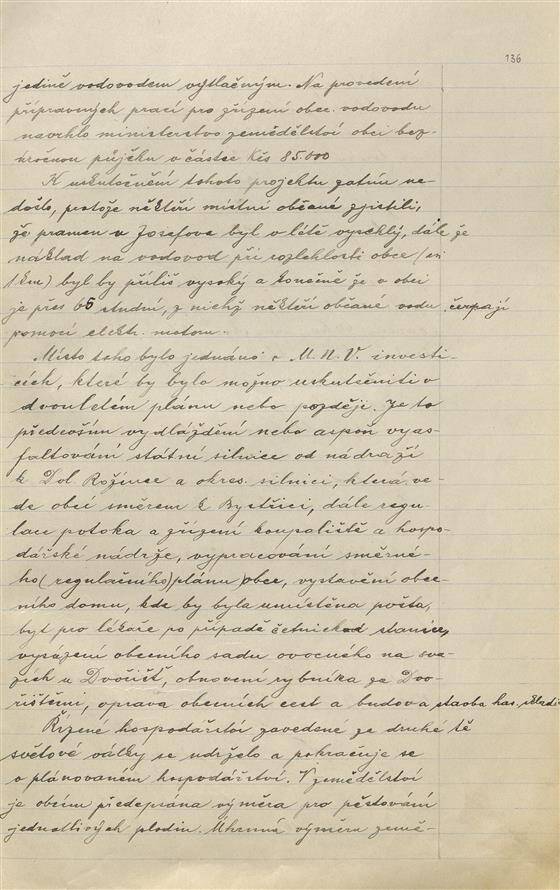 136
jedině vodovodem výtlačným. Na provedení
přípravných prací pro zřízení obec. vodovodu
navrhlo ministerstvo zemědělství obci bez-
úročnou půjčku v částce Kčs 85.000
K uskutečnění tohoto projektu zatím ne-
došlo, protože někteří místní občané zjistili,
že pramen v Josefove byl v létě vyschlý, dále že
náklad na vodovod při rozlehlosti obce (asi
1 km) byl by příliš vysoký a konečně že v obci
je přes 65 studní, z nichž někteří občané vodu čerpají
pomocí elektr. motoru.
Místo toho bylo jednáno v M. N. V. investi-
cích, které by bylo možno uskutečniti v
dvouletém plánu nebo později. Je to
především vydláždění nebo aspoň vyas-
faltování státní silnice od nádraží
k Dol. Rožínce a okres. silnici, která ve-
de obcí směrem k Bystřici, dále regu-
lace potoka a zřízení koupaliště a hospo-
dářské nádrže, vypracování směrné-
ho (regulačního) plánu obce, vystavění obec-
ního domu, kde by byla umístěna pošta,
byt pro lékaře po případě četnická stanice,
vysázení obecního sadu ovocného na sva-
zích u Dvořišť, obnovení rybníka za Dvo-
řištěmi, oprava obecních cest a budova stavba has. skladi
Řízené hospodářství zavedené za druhé té
světové války se udrželo a pokračuje se
v plánovaném hospodářství. V zemědělství
je obcím předepsána výměra pro pěstování
jednotlivých plodin. Úhrnná výměra země-